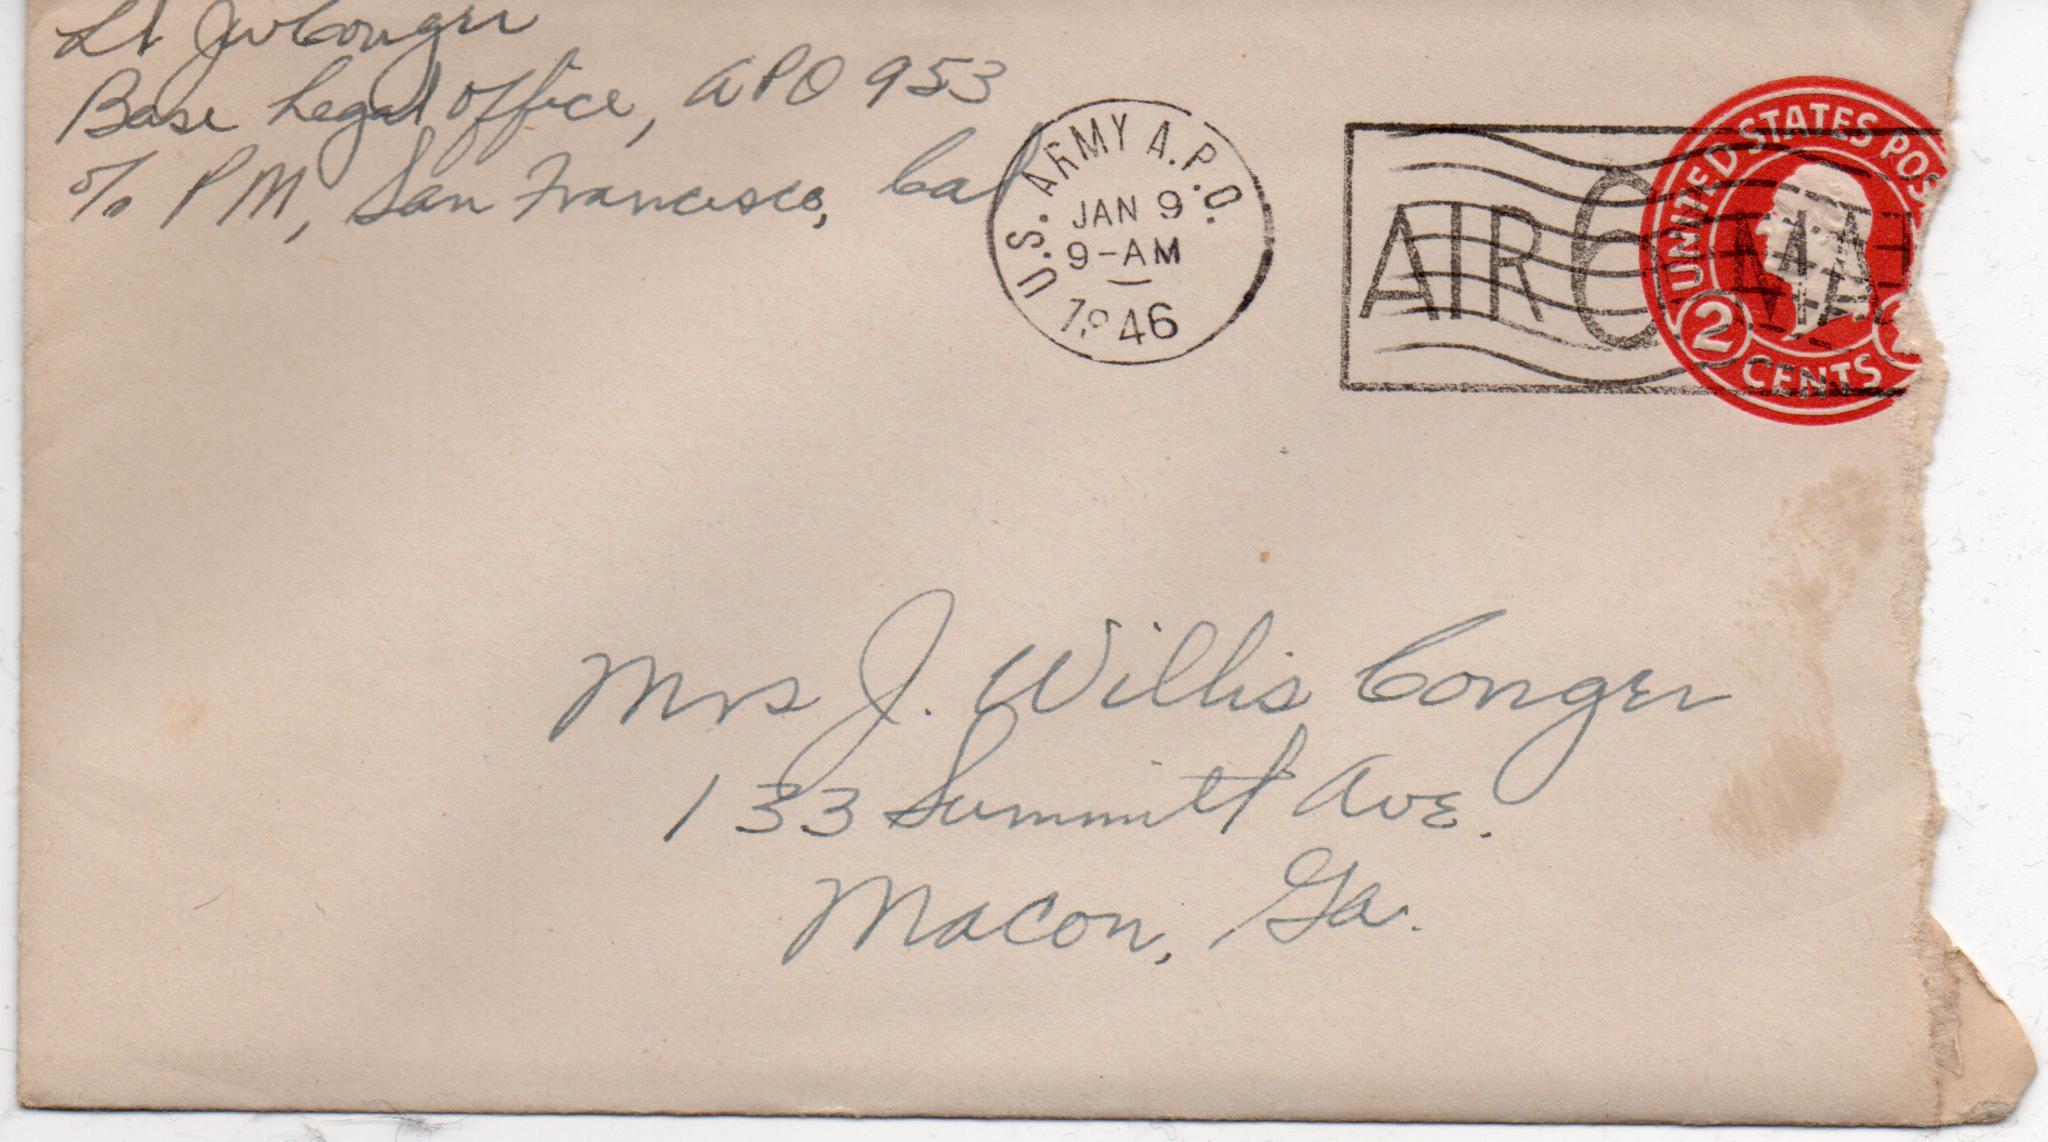 Lt JW Conger
Base Legal Office, APO 953
c/o PM, San Francisco, Cal
U.S. ARMY A.P.O.
JAN 9
9-AM
1946
AIR MA
UNITED STATES POS
2 CENTS 2
Mrs J. Willis Conger
133 Summitt Ave.
Macon, Ga.